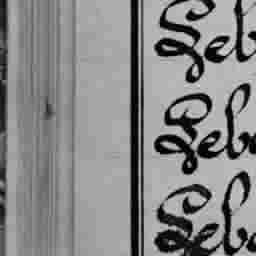 Leb
Leb
Leb